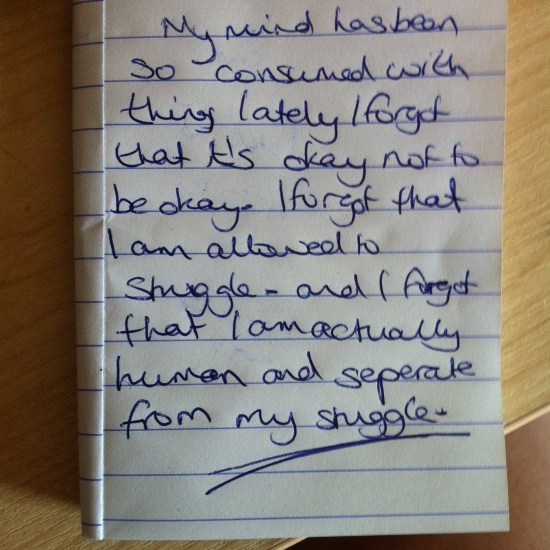 My mind has been
so consumed with
thing lately I forgot
that it's okay not to
be okay. I forgot that
I am allowed to
struggle - and I forget
that I am actually
human and seperate
from my struggle.